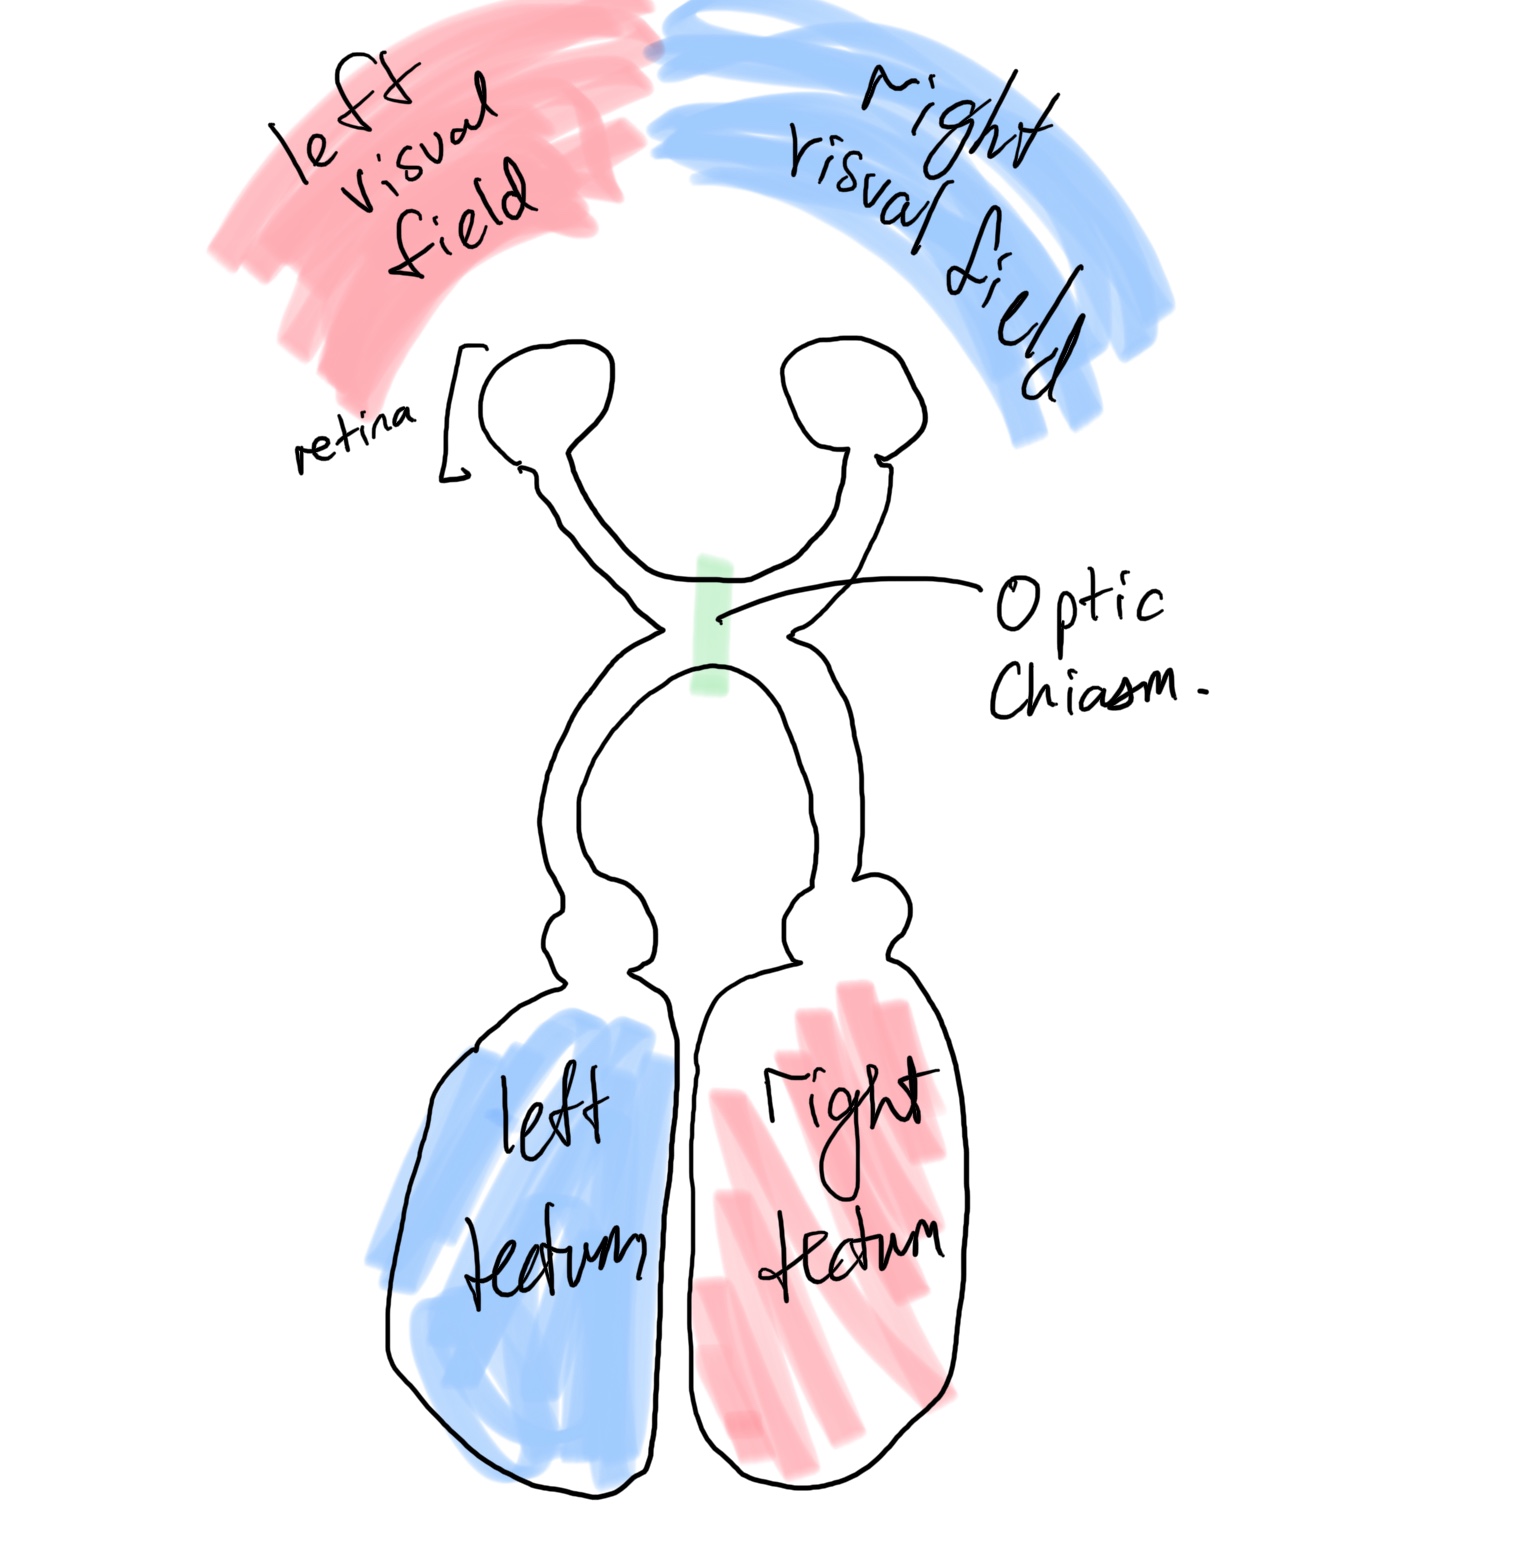 left
visual
field
right
visual field
retina
Optic
Chiasm.
left
tectum
right
tectum